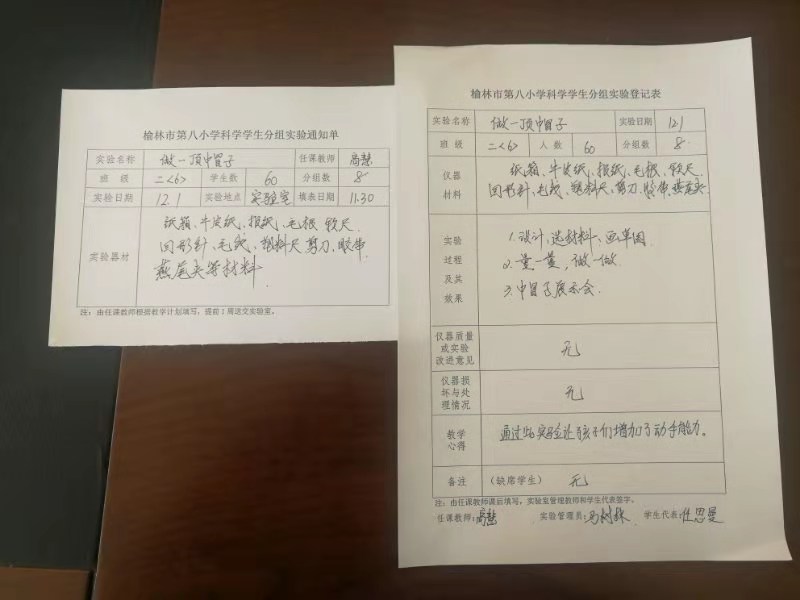 榆林市第八小学科学学生分组实验通知单
实验名称 做一顶帽子 任课教师 高慧
班 级 二<6> 学生数 60 分组数 8
实验日期 12.1 实验地点 实验室 填表日期 11.30
实验器材
纸箱、牛皮纸、报纸、毛根 软尺
回形针、毛线、塑料尺 剪刀、胶带
燕尾夹等材料
注：由任课教师根据教学计划填写，提前1周送交实验室。
榆林市第八小学科学学生分组实验登记表
实验名称 做一顶帽子 实验日期 12.1
班 级 二<6> 人 数 60 分组数 8
仪器
材料
纸箱、牛皮纸、报纸、毛根、软尺
回形针、毛线、塑料尺、剪刀、胶带、燕尾夹
实验
过程
及其
效果
1.设计、选材料、画草图
2.量一量，做一做
3.帽子展示会.
仪器质量
或实验
改进意见
无
仪器损
坏与处
理情况
无
教学
心得
通过此实验让孩子们增加了动手能力。
备注 (缺席学生) 无
注：由任课教师课后填写，实验室管理教师和学生代表签字。
任课教师:高慧 实验管理员: 学生代表: